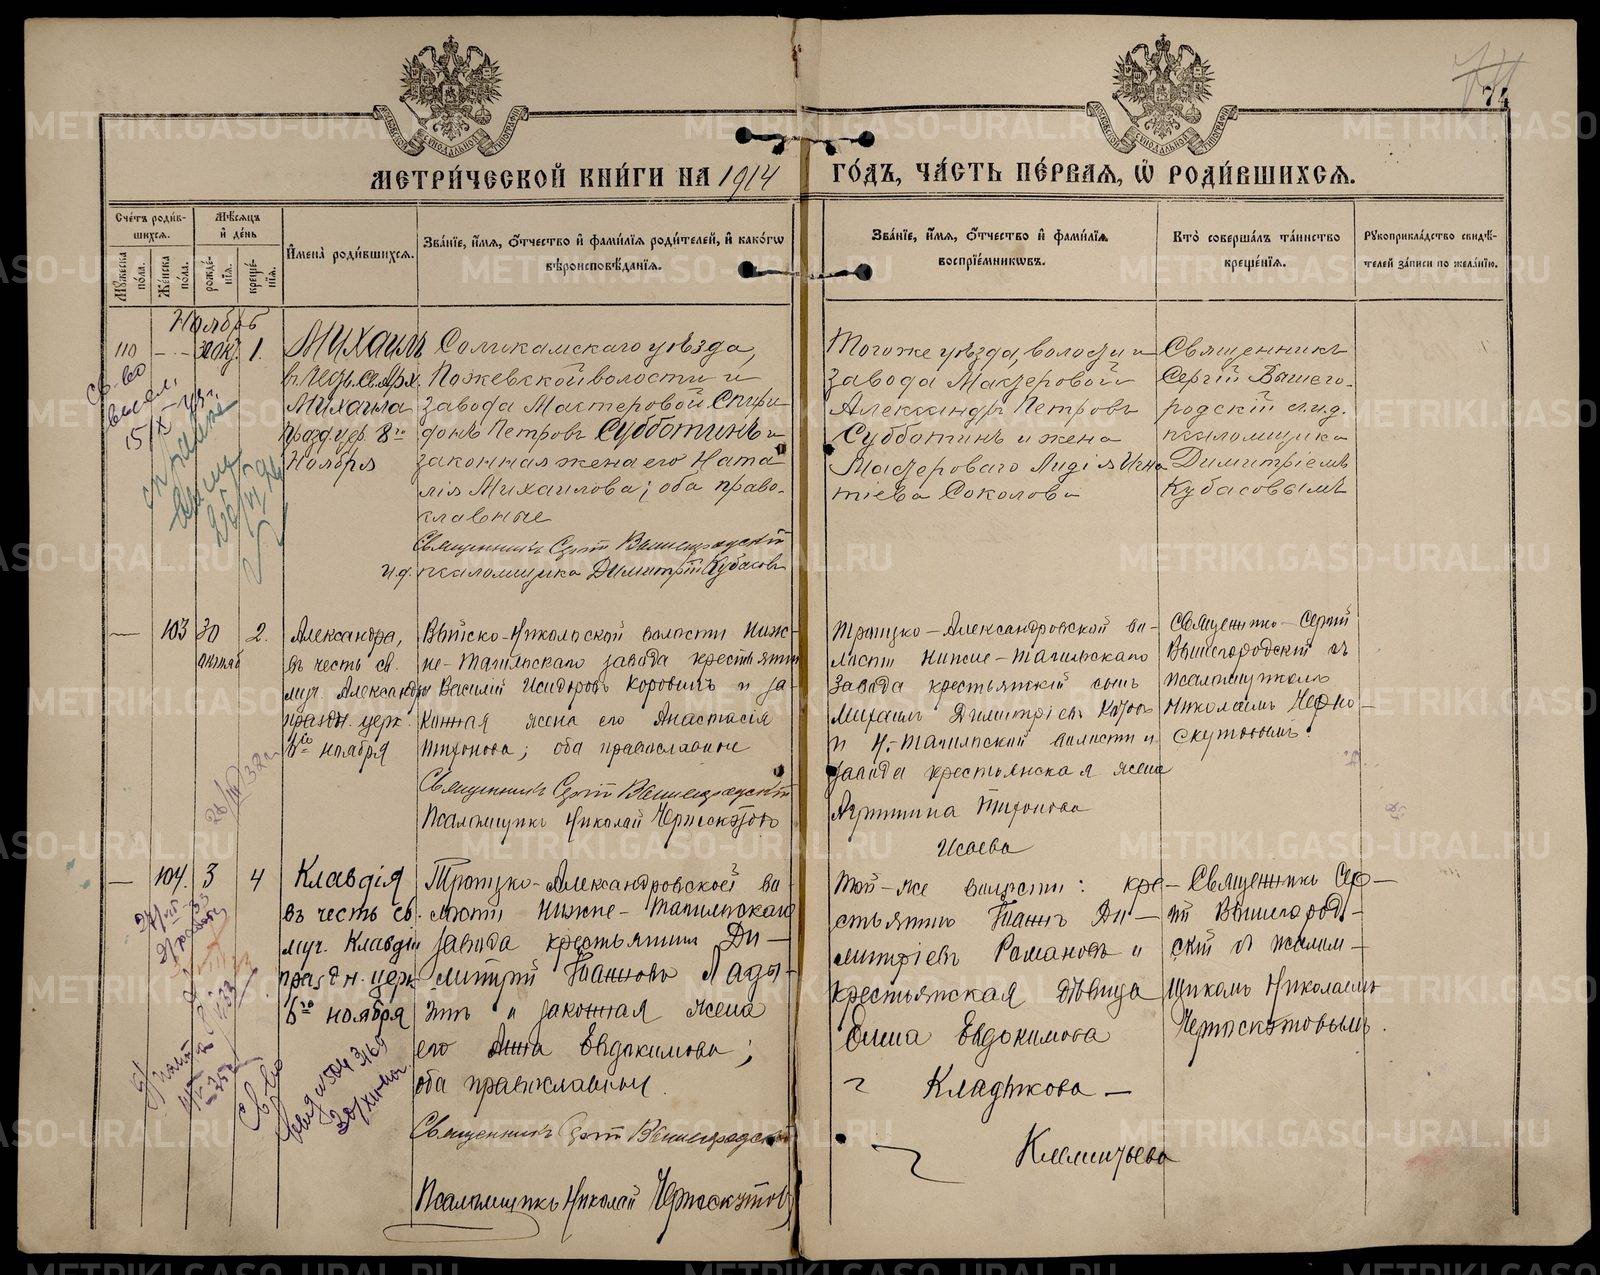 МЕТРИ́ЧЕСКОЙ КНИ́ГИ НА 1914 ГО́ДЪ, ЧА́СТЬ ПЕ́РВАѦ, Ѡ РОДИ́ВШИХСѦ.
Сче́тъ роди́в-
шихсѧ.
Мꙋжеска по́ла.
Же́нска по́ла.
Мѣ́сѧцъ
и де́нь
рожде́-
нїѧ.
креще́-
нїѧ.
Имена̀ роди́вшихсѧ.
Зва́нїе, и́мѧ, о́тчество и фами́лїѧ роди́телей, и како́гѡ
вѣроисповѣ́данїѧ.
Зва́нїе, и́мѧ, о́тчество и фами́лїѧ
воспрїе́мникѡвъ.
Кто̀ соверша́лъ та́инство
креще́нїѧ.
Рꙋкоприкла́дство свидѣ́-
телей за́писи по жела́нїю.
Ноябрь
110
1.
Михаилъ
Михаила
8го
Ноября
Соликамскаго уѣзда,
Пожевской волости и
завода Мастеровой Спири-
донъ Петровъ Субботинъ и
законная жена его Ната-
лія Михаилова; оба право-
славные
Священникъ Сергій Вышегородскій
и.д. псаломщика Димитрій Кубасовъ
Тогоже уѣзда, волости и
завода Мастеровой
Александръ Петровъ
Субботинъ и жена
Мастероваго Лидія Игна
тіева Соколова
Священникъ
Сергій Вышего-
родскій с и.д.
псаломщика
Димитріемъ
Кубасовымъ
103
30
октяб
2.
Александра,
въ честь св.
муч. Александры
праздн. церк.
6го ноября
Выйско-Никольской волости Ниж-
не-Тагильскаго завода крестьянинъ
Василій Исидоровъ Коровинъ и за-
конная жена его Анастасія
Тихонова; оба православные
Священникъ Сергій Вышегородскій
Псаломщикъ Николай Черноскутовъ
Троицко-Александровской во-
лости Нижне-Тагильскаго
завода крестьянскій сынъ
Михаилъ Димитріевъ
и Н.-Тагильской волости и
завода крестьянская жена
Агриппина Тихонова
Исаева
Священникъ Сергій
Вышегородскій съ
псаломщикомъ
Николаемъ Черно-
скутовымъ.
104.
3
4
Клавдія
въ честь св.
муч. Клавдіи
праздн. церк
6го ноября
Троицко-Александровской во-
лости Нижне-Тагильскаго
завода крестьянинъ Ди-
митрій Іоанновъ Лады-
гинъ и законная жена
его Анна Евдокимова;
оба православные.
Священникъ Сергій Вышегородскій
Псаломщикъ Николай Черноскутовъ
Той-же волости: кре-
стьянинъ Іоаннъ Ди-
митріевъ Романовъ и
крестьянская дѣвица
Елена Евдокимова
Кладикова
Клементьева
Священникъ Сер-
гій Вышегород-
скій съ псалом-
щикомъ Николаемъ
Черноскутовымъ.
METRIKI.GASO-URAL.RU